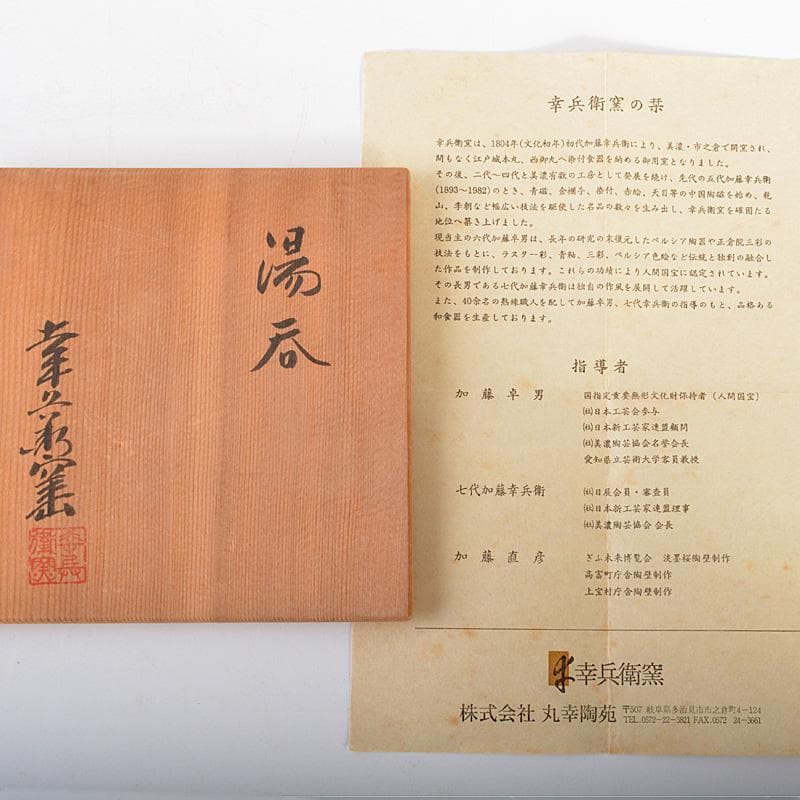 湯呑
幸兵衛窯
幸兵衛窯
幸兵衛窯の栞
幸兵衛窯は、1804年(文化初年)初代加藤幸兵衛により、美濃・市之倉で開窯され、
間もなく江戸城本丸、西御丸へ染付食器を納める御用窯となりました。
その後、二代〜四代と美濃有数の工房として発展を続け、先代の五代加藤幸兵衛
(1893〜1982)のとき、青磁、金襴手、染付、赤絵、天目等の中国陶磁を始め、乾
山、李朝など幅広い技法を駆使した名品の数々を生み出し、幸兵衛窯を確固たる
地位へ築き上げました。
現当主の六代加藤卓男は、長年の研究の末復元したペルシア陶器や正倉院三彩の
技法をもとに、ラスター彩、青釉、三彩、ペルシア色絵など伝統と独創の融合し
た作品を制作しております。これらの功績により人間国宝に認定されています。
その長男である七代加藤幸兵衛は独自の作風を展開して活躍しています。
また、40余名の熟練職人を配して加藤卓男、七代幸兵衛の指導のもと、品格ある
和食器を生産しております。
指導者
加藤卓男 国指定重要無形文化財保持者(人間国宝)
㈳日本工芸会参与
㈳日本新工芸家連盟顧問
㈳美濃陶芸協会名誉会長
愛知県立芸術大学客員教授
七代加藤幸兵衛 ㈳日展会員・審査員
㈳日本新工芸家連盟理事
㈳美濃陶芸協会会長
加藤直彦 ぎふ未来博覧会 淡墨桜陶壁制作
高富町庁舎陶壁制作
上宝村庁舎陶壁制作
幸兵衛窯
株式会社 丸幸陶苑 〒507 岐阜県多治見市市之倉町4-124
TEL.0572-22-3821 FAX.0572 24-3661